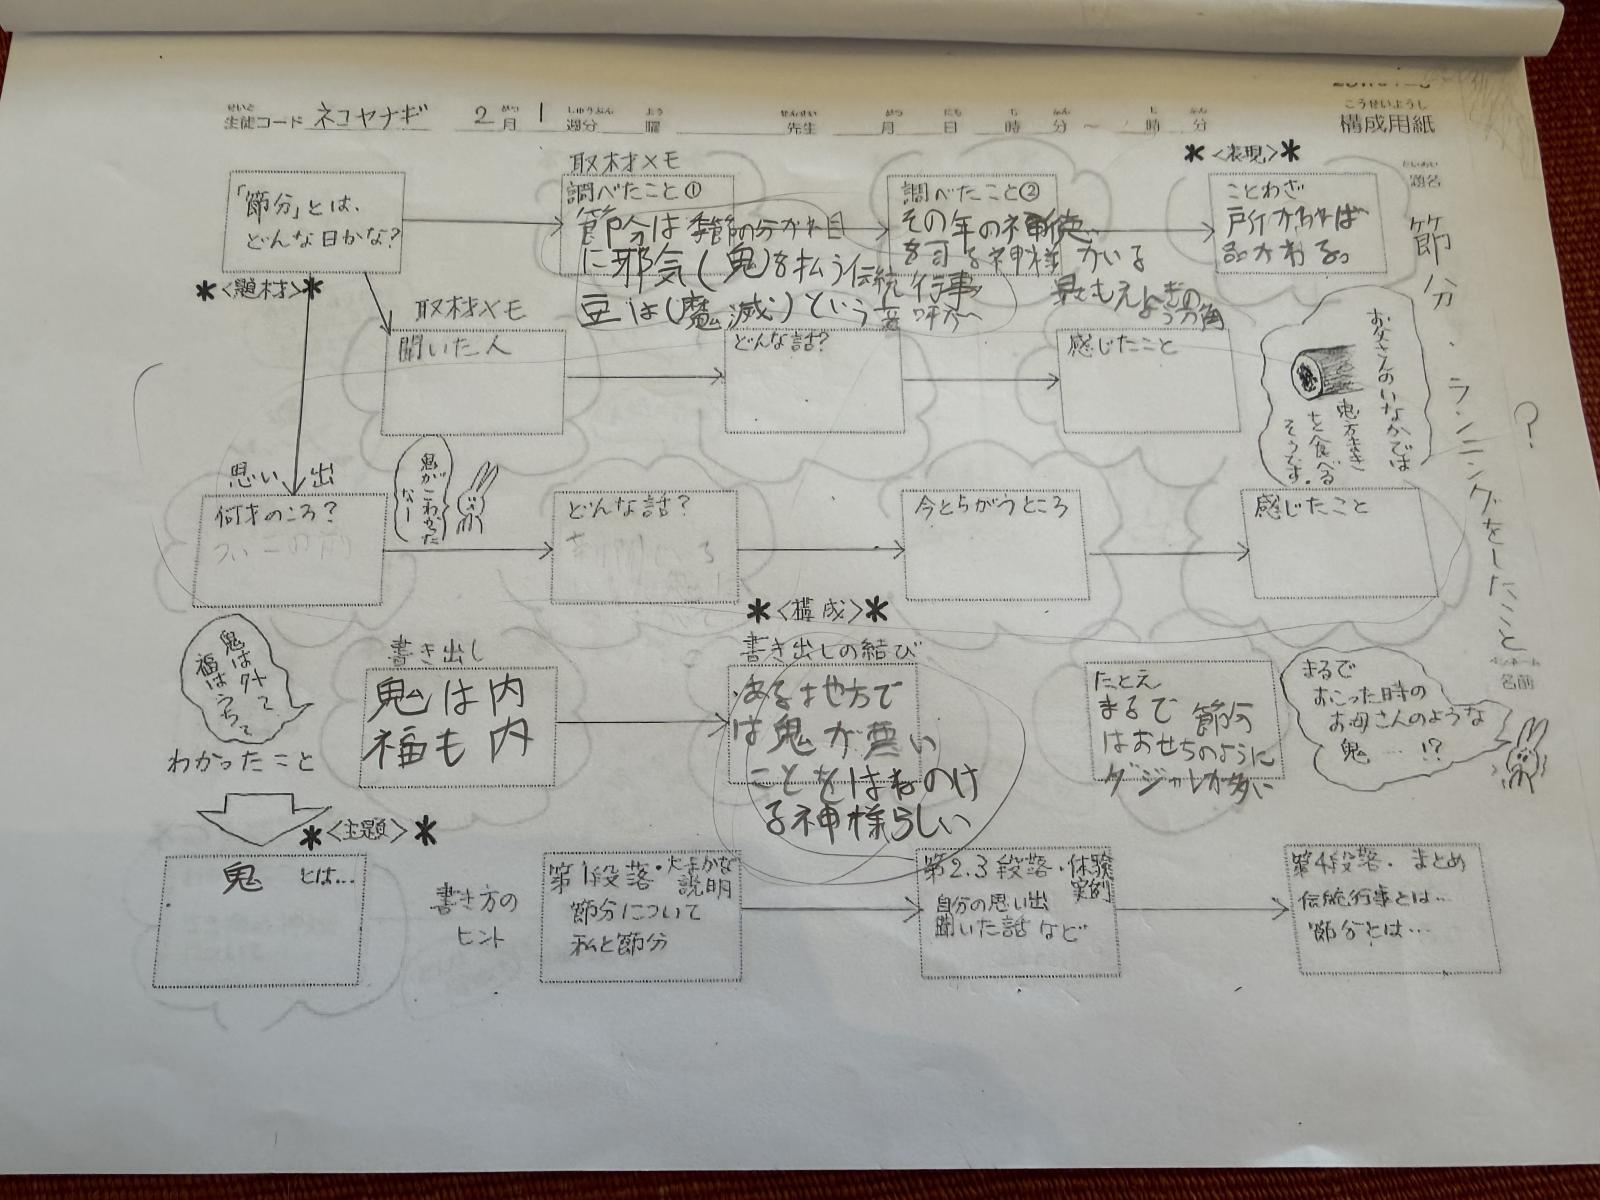 生徒コード ネコヤナギ 2月 1週分 曜 先生 月 日 時 分 ～ 時 分
構成用紙
題名
節分・ランニングをしたこと
？
名前
「節分」とは、
どんな日かな?
*<題材>*
取材メモ
調べたこと①
節分は季節の分かれ目
に邪気(鬼)を払う伝統行事
豆は(魔滅)という
調べたこと②
その年の神徳
を司る神様がいる
*<表現>*
ことわざ
所かわれば
品かわる。
取材メモ
聞いた人
どんな話?
感じたこと
お父さんのいなかでは
恵方まき
を食べる
そうです。
思い出
何才のころ?
鬼が
こわかった
なー
どんな話?
今とちがうところ
感じたこと
*<構成>*
鬼は外って
福はうちって
わかったこと
書き出し
鬼は内
福も内
書き出しの結び
ある地方で
は鬼が悪い
ことをはねのけ
る神様らしい
たとえ
まるで 節分
はおせちのように
ダジャレが多い
まるで
おこった時の
お母さんのような
鬼……!?
*<主題>*
鬼 とは…
書き方の
ヒント
第1段落・大まかな
説明
節分について
私と節分
第2.3段落・体験
実例
自分の思い出
聞いた話など
第4段落・まとめ
伝統行事とは…
節分とは…